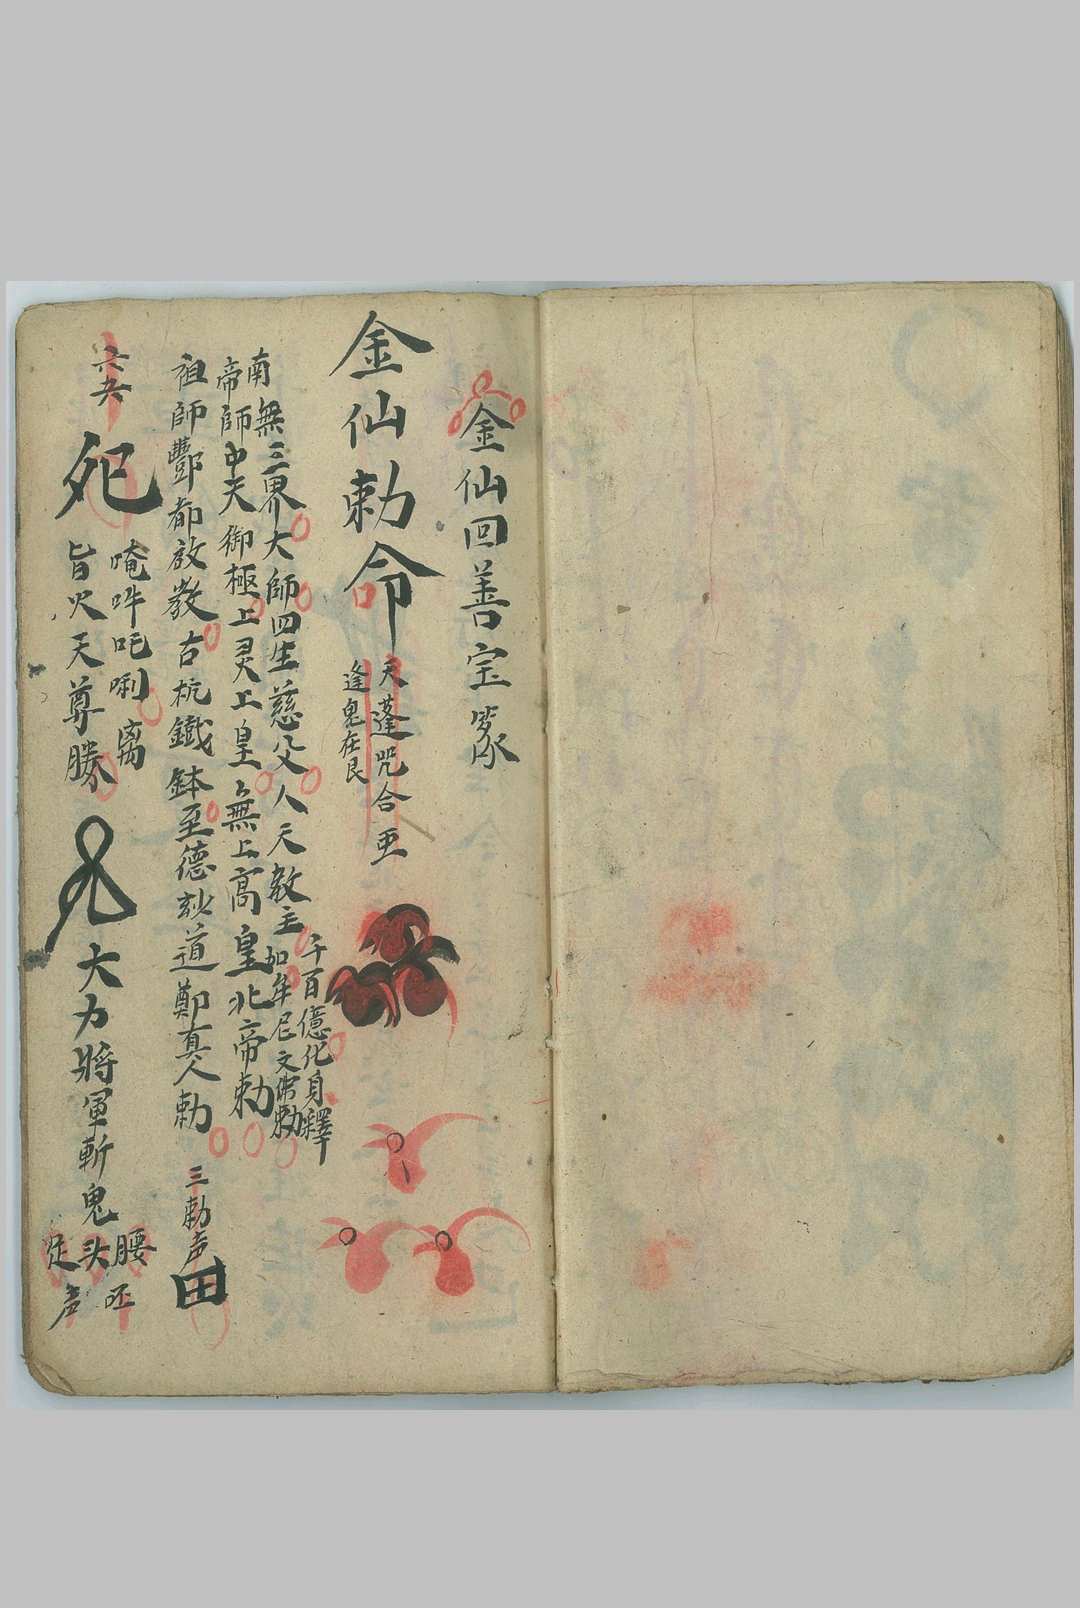 金仙回善宝篆
金仙勅命
天蓬咒合
逢鬼在艮
南無三界大師四生慈父人天教主
千百億化身釋
加牟尼文佛勅
帝師中天御極上灵上皇無上高皇北帝勅
祖師酆都啟教古杭鐵鉢至德玅道鄭真人勅
三勅声
唵吽吒唎
离
旨火天尊勝
大力將軍斬鬼
腰
头
足
声